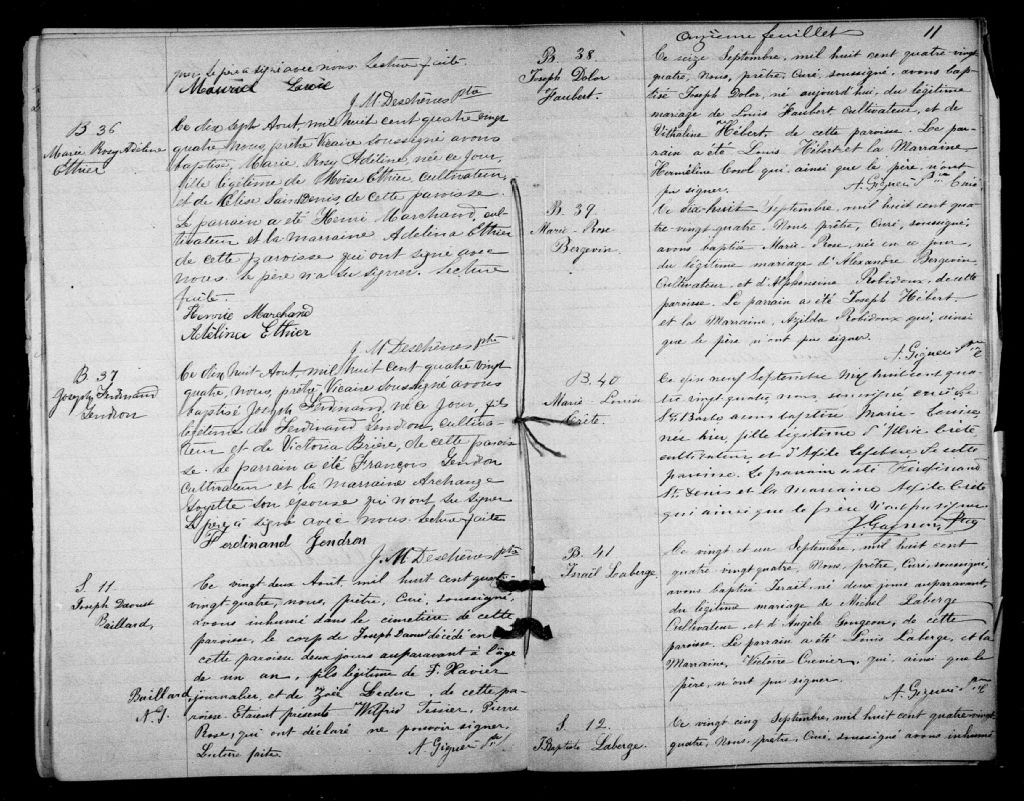 père. Le père a signé avec nous. Lecture faite.
J. M. Deschênes ptre
B 36
Marie Rosy Adélina
Ethier
Ce dix sept Aout, mil huit cent quatre vingt
quatre, nous, prêtre Vicaire soussigné avons
baptisé, Marie, Rosy Adélina, née ce jour,
fille légitime de Moïse Ethier, cultivateur,
et de Elise Saindenis, de cette paroisse.
Le parrain a été Henri Marchand, cul-
tivateur et la marraine Adelina Ethier
de cette paroisse qui ont signé avec
nous. Le père n'a su signer. Lecture
faite.
Henrie Marchand
Adélina Ethier
J. M Deschênes ptre
B 37
Joseph Ferdinand
Gendron
Ce dix huit Aout, mil huit cent quatre vingt
quatre, nous, prêtre Vicaire soussigné avons
baptisé Joseph Ferdinand, né ce jour, fils
légitime de Ferdinand Gendron, cultiva-
teur et de Victoria Brière, de cette parois
se. Le parrain a été François Gendron
cultivateur et la marraine Archange
Goyette son épouse qui n'ont su signer
Le père a signé avec nous. Lecture faite
Ferdinand Gendron
J. M Deschênes ptre
S. 11
Joseph Daoust
Baillard,
Ce vingt deux Août, mil huit cent quatre-
vingt quatre, nous, prêtre, Curé, soussigné,
avons inhumé dans le cimetière de cette
paroisse, le corps de Joseph Daoust décédé en
cette paroisse deux jours auparavant à l'âge
de un an, fils légitime de F. Xavier
Baillard, journalier, et de Zoé Leduc, de cette pa-
A. G.
roisse. Étaient présents Wilfrid Tessier, Pierre
Rose, qui ont déclaré ne pouvoir signer.
Lecture faite.
A. Giguer Ptre
onzième feuillet
11
B. 38
Joseph Dolor
Haubert.
Ce seize Septembre, mil huit cent quatre vingt
quatre, Nous, prêtre, Curé, soussigné, avons bap-
tisé Joseph Dolor, né aujourd'hui, du légitime
mariage de Louis Haubert, Cultivateur, et de
Vithaline Hébert, de cette paroisse. Le par-
rain a été Louis Hébert et la Marraine,
Herméline qui, ainsi que le père, n'ont
pu signer.
A. Giguer Ptre Curé
B. 39
Marie-Rose
Bergevin
Ce dix-huit Septembre, mil huit cent qua-
tre vingt quatre. Nous, prêtre, Curé, soussigné,
avons baptisé Marie-Rose, née en ce jour,
du légitime mariage d'Alexandre Bergevin
Cultivateur, et d'Alphonsine Robidoux, de cette
paroisse. Le parrain a été Joseph Hébert
et la Marraine, Azilda Robidoux qui, ainsi
que le père n'ont pu signer.
A. Giguer Ptre
B. 40
Marie-Louise
Crête.
Ce dix neuf Septembre mil huit cent qua-
tre vingt quatre, nous, soussigné, curé de
avons baptisé Marie-Louise
née hier, fille légitime d'Ulric Crête
cultivateur et d'Agile Lefebvre de cette
paroisse. Le parrain a été Ferdinand
St. Denis et la Marraine Crête
qui ainsi que le père n'ont pu signer
J. Gagnon Ptre
B. 41
Israël Laberge.
Ce vingt et un Septembre, mil huit cent
quatre-vingt quatre, Nous, prêtre, Curé, soussigné,
avons baptisé Israël, né deux jours auparavant,
du légitime mariage de Michel Laberge
Cultivateur, et d'Angèle Gougeon, de cette
paroisse. Le parrain a été Louis Laberge, et la
Marraine, Victoire Crevier, qui, ainsi que le
père, n'ont pu signer.
A. Giguer Ptre
S. 12.
J. Baptiste Laberge.
Ce vingt cinq Septembre, mil huit cent quatre vingt
quatre, Nous, prêtre, Curé, soussigné avons inhumé